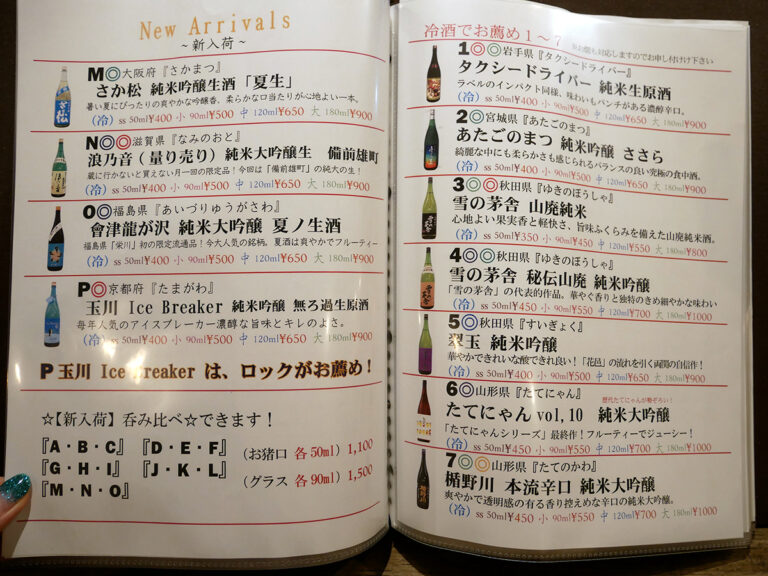 New Arrivals
~新入荷~
M◎大阪府『さかまつ』
さか松 純米吟醸生酒「夏生」
暑い夏にぴったりの爽やかな吟醸香、柔らかな口当たりが心地よい一本。
(冷) ss 50ml¥400 小 90ml¥500 中 120ml¥650 大 180ml¥900
N◎◎滋賀県『なみのおと』
浪乃音(量り売り)純米大吟醸生 備前雄町
蔵に行かないと買えない月一回の限定品!今回は「備前雄町」の純大の生!
(冷) ss 50ml¥400 小 90ml¥500 中 120ml¥650 大 180ml¥900
O◎福島県『あいづりゅうがさわ』
會津龍が沢 純米大吟醸 夏ノ生酒
福島県「栄川」初の限定流通品!今大人気の銘柄。夏酒は爽やかでフルーティー
(冷) ss 50ml¥400 小 90ml¥500 中 120ml¥650 大 180ml¥900
P◎京都府『たまがわ』
玉川 Ice Breaker 純米吟醸 無ろ過生原酒
毎年人気のアイスブレーカー濃醇な旨味とキレのよさ。
(冷) ss 50ml¥400 小 90ml¥500 中 120ml¥650 大 180ml¥900
P 玉川 Ice Breaker は、ロックがお薦め!
☆【新入荷】呑み比べ☆できます!
『A・B・C』『D・E・F』
(お猪口 各 50ml) 1,100
『G・H・I』『J・K・L』
(グラス 各 90ml) 1,500
『M・N・O』
冷酒でお薦め1~7
※お燗も対応しますのでお申し付け下さい
1◎◎岩手県『タクシードライバー』
タクシードライバー 純米生原酒
ラベルのインパクト同様、味わいもパンチがある濃醇辛口。
(冷) ss 50ml¥400 小 90ml¥500 中 120ml¥650 大 180ml¥900
2◎宮城県『あたごのまつ』
あたごのまつ 純米吟醸 ささら
綺麗な中にも柔らかさも感じられるバランスの良い究極の食中酒。
(冷) ss 50ml¥400 小 90ml¥500 中 120ml¥650 大 180ml¥900
3◎◎秋田県『ゆきのぼうしゃ』
雪の茅舎 山廃純米
心地よい果実香と軽快さ、旨味ふくらみを備えた山廃純米酒。
(冷) ss 50ml¥350 小 90ml¥450 中 120ml¥550 大 180ml¥800
4◎◎秋田県『ゆきのぼうしゃ』
雪の茅舎 秘伝山廃 純米吟醸
「雪の茅舎」の代表的作品。華やぐ香りと独特のきめ細やかな味わい
(冷) ss 50ml¥450 小 90ml¥550 中 120ml¥700 大 180ml¥1000
5◎秋田県『すいぎょく』
翠玉 純米吟醸
華やかできれいな酸できれ良い!「花邑」の流れを引く両関の自信作!
(冷) ss 50ml¥400 小 90ml¥500 中 120ml¥650 大 180ml¥900
6◎山形県『たてにゃん』
歴代たてにゃんが勢ぞろい!
たてにゃん vol, 10 純米大吟醸
「たてにゃんシリーズ」最終作!フルーティーでジューシー!
(冷) ss 50ml¥450 小 90ml¥550 中 120ml¥700 大 180ml¥1000
7◎◎山形県『たてのかわ』
楯野川 本流辛口 純米大吟醸
爽やかで透明感の有る香り控えめな辛口の純米大吟醸。
(冷) ss 50ml¥450 小 90ml¥550 中 120ml¥700 大 180ml¥1000